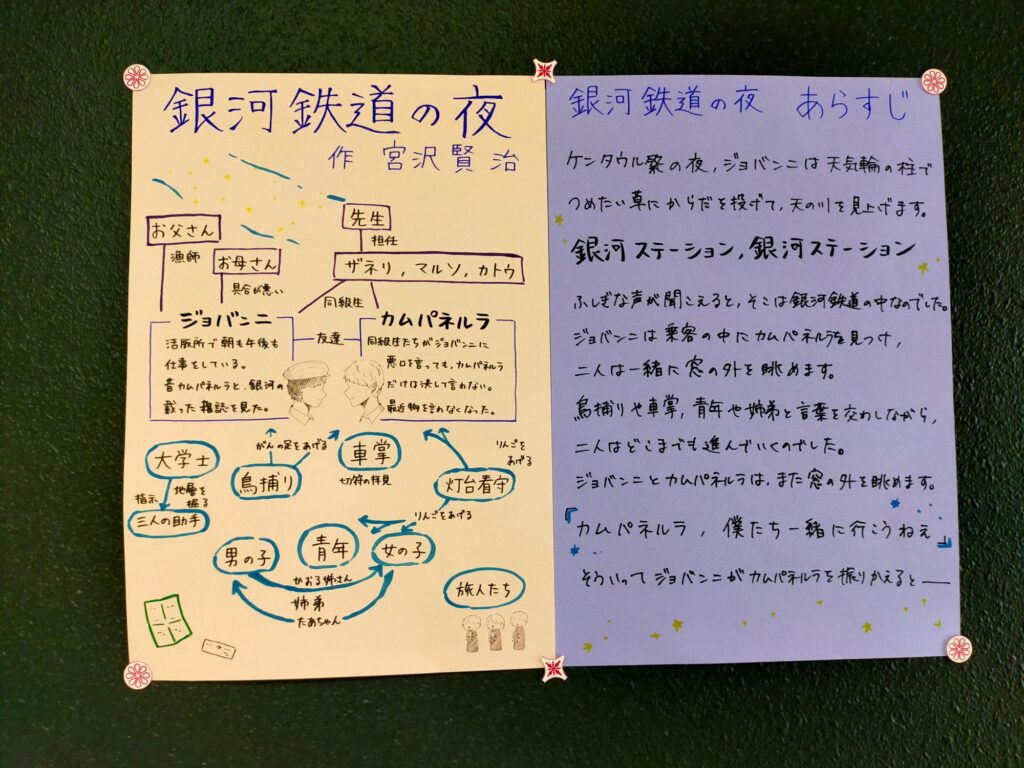 銀河鉄道の夜
作 宮沢賢治
お父さん
漁師
お母さん
具合が悪い
先生
担任
ザネリ,マルソ,カトウ
同級生
ジョバンニ
活版所で朝も午後も
仕事をしている。
昔カムパネルラと、銀河の
載った雑誌を見た。
友達
カムパネルラ
同級生たちがジョバンニに
悪口を言っても,カムパネルラ
だけは決して言わない。
最近物を言わなくなった。
大学士
指示
地層を
掘る
三人の助手
がんの足をあげる
鳥捕り
車掌
切符の拝見
りんごを
あげる
灯台看守
りんごをあげる
男の子
青年
女の子
かおる姉さん
姉弟
たあちゃん
旅人たち
銀河鉄道の夜 あらすじ
ケンタウル祭の夜,ジョバンニは天気輪の柱で
つめたい草にからだを投げて,天の川を見上げます。
銀河ステーション,銀河ステーション
ふしぎな声が聞こえると,そこは銀河鉄道の中なのでした。
ジョバンニは乗客の中にカムパネルラを見つけ,
二人は一緒に窓の外を眺めます。
鳥捕りや車掌,青年や姉弟と言葉を交わしながら,
二人はどこまでも進んでいくのでした。
ジョバンニとカムパネルラは,また窓の外を眺めます。
『カムパネルラ,僕たち一緒に行こうねえ』
そういってジョバンニがカムパネルラを振りかえると――